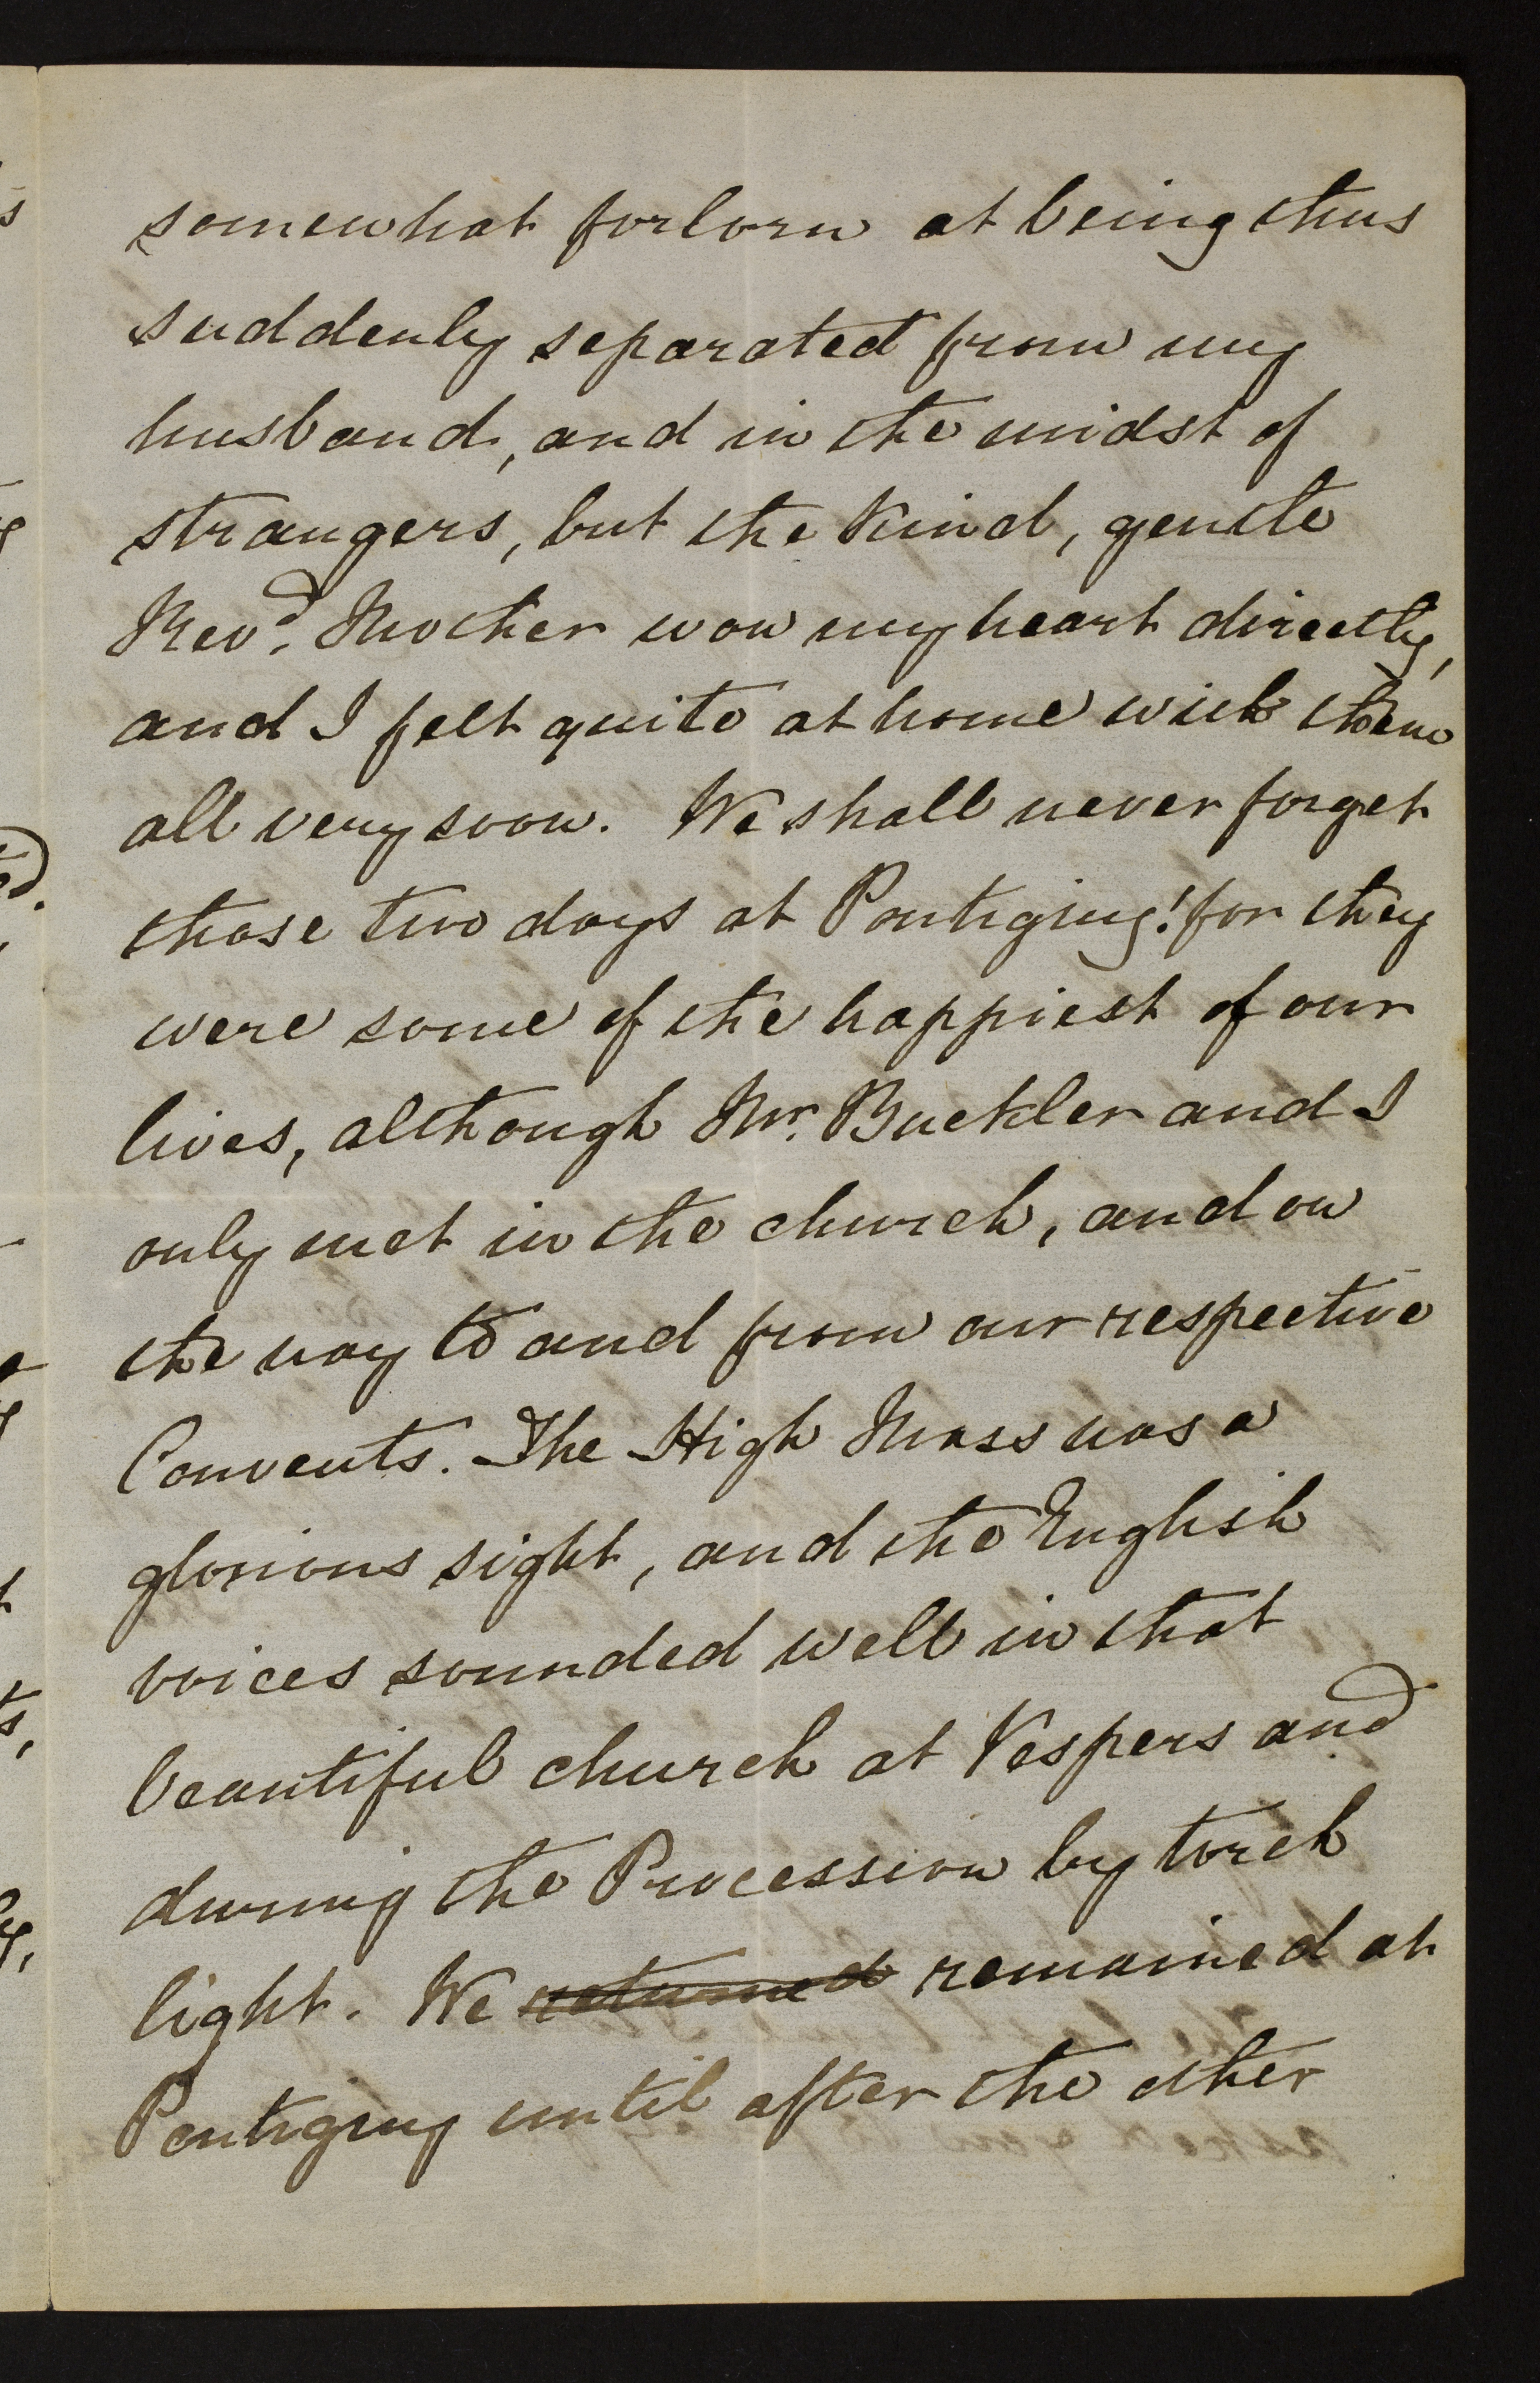 somewhat forlorn at being thus
suddenly separated from my
husband, and in the midst of
strangers, but the kind, gentle
Revd. Mother won my heart directly,
and I felt quite at home with them
all very soon. We shall never forget
those two days at Pontigny! for they
were some of the happiest of our
lives, although Mr. Buckler and I
only met in the church, and on
the way to and from our respective
Convents. The High Mass was a
glorious sight, and the English
voices sounded well in that
beautiful church at Vespers and
during the Procession by torch
light. We returned remained at
Pontigny until after the other